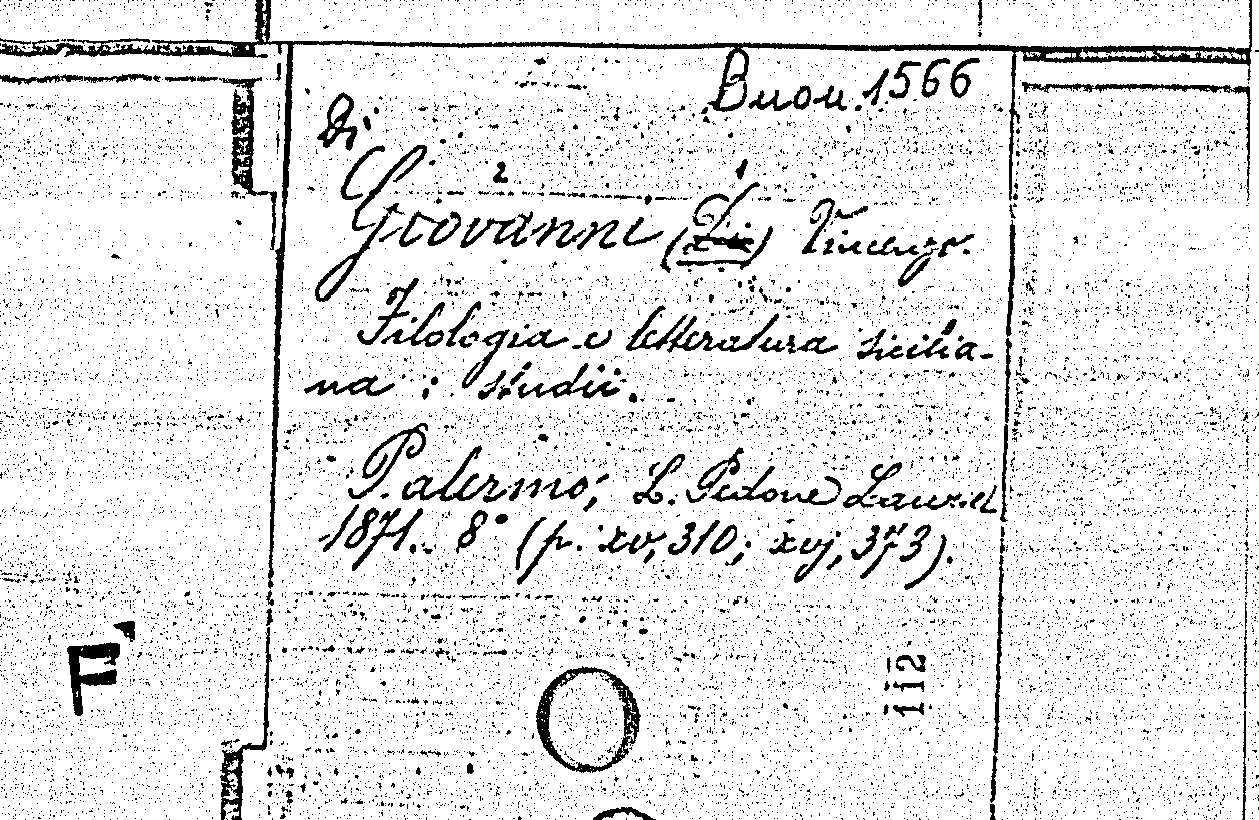 Buon. 1566
Di
2 1
Giovanni (Di) Vincenzo.
Filologia e letteratura sicilia-
na : studii.
Palermo; L. Pedone Lauriel
1871. 8° (p. xv, 310; xvj, 373).
112
F